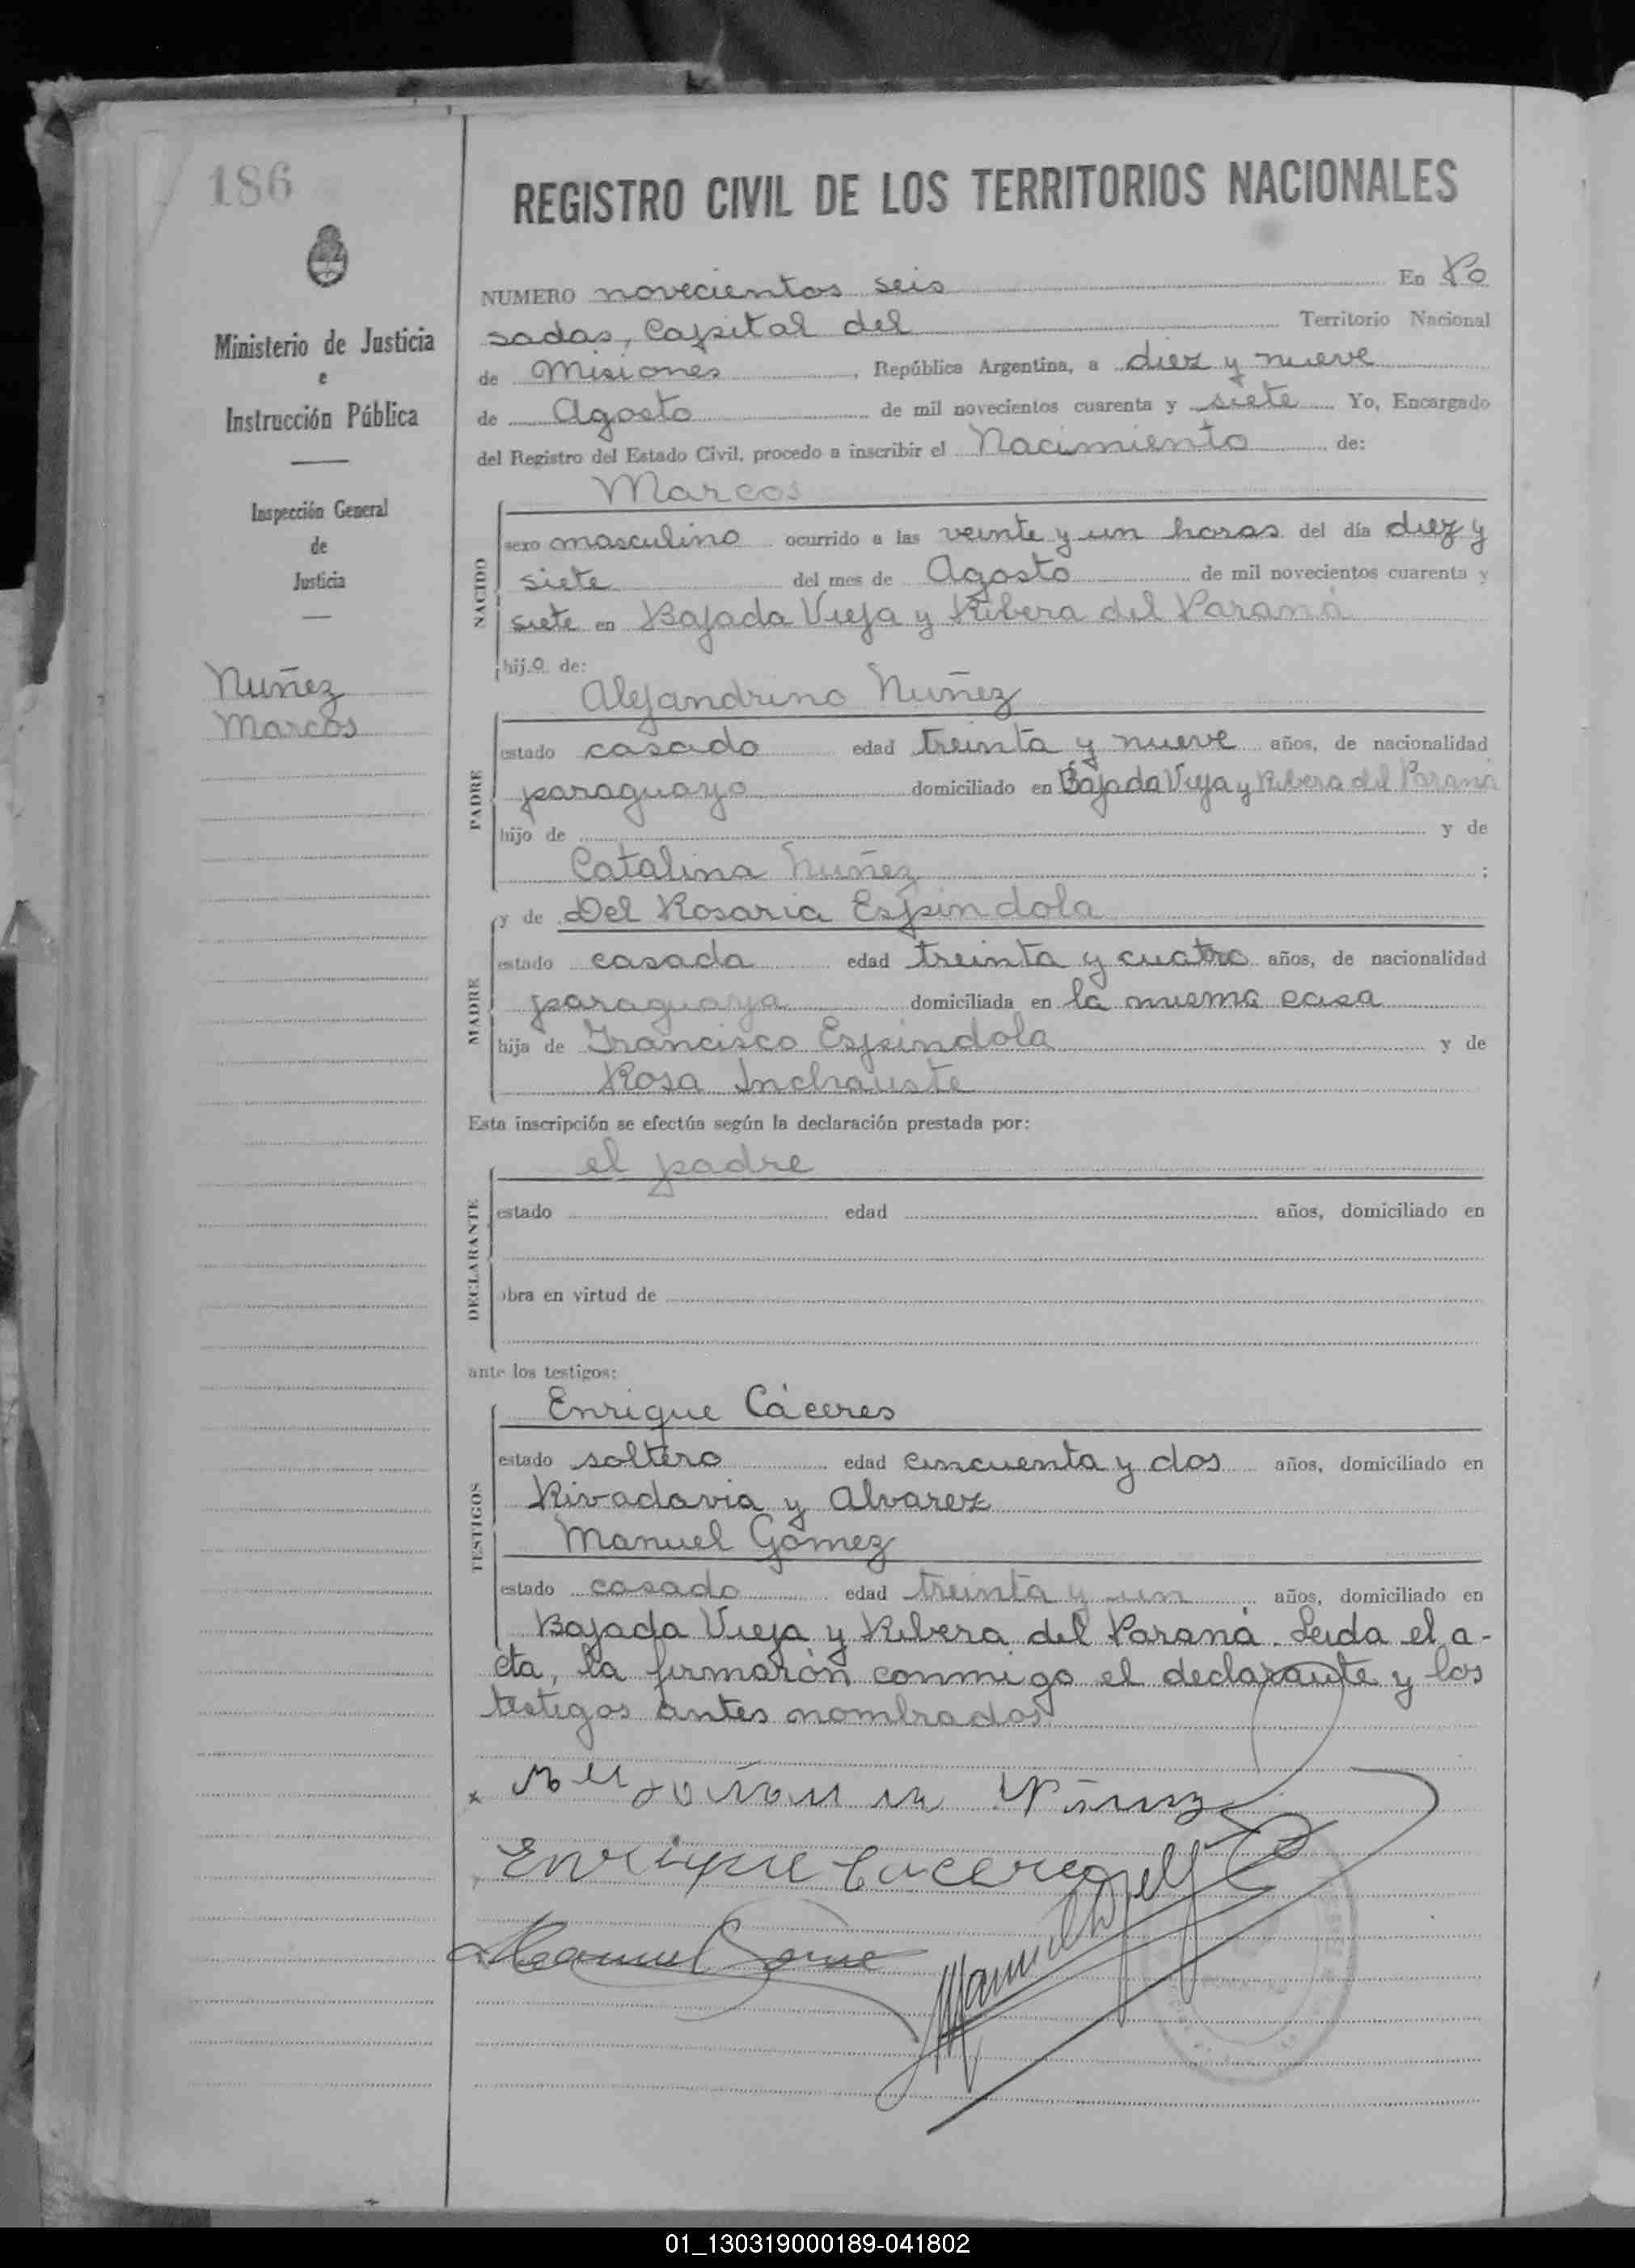 186
REGISTRO CIVIL DE LOS TERRITORIOS NACIONALES
Ministerio de Justicia
e
Instrucción Pública
Inspección General
de
Justicia
Nuñez
Marcos
NUMERO novecientos seis En Po
sadas, Capital del Territorio Nacional
de Misiones, República Argentina, a diez y nueve
de Agosto de mil novecientos cuarenta y siete Yo, Encargado
del Registro del Estado Civil, procedo a inscribir el Nacimiento de:
Marcos
NACIDO
sexo masculino ocurrido a las veinte y un horas del día diez y
siete del mes de Agosto de mil novecientos cuarenta y
siete en Bajada Vieja y Ribera del Paraná
hijo de:
Alejandrino Nuñez
PADRE
estado casado edad treinta y nueve años, de nacionalidad
paraguayo domiciliado en Bajada Vieja y Ribera del Paraná
hijo de y de
Catalina Nuñez ;
y de Del Rosaria Espindola
MADRE
estado casada edad treinta y cuatro años, de nacionalidad
paraguaya domiciliada en la misma casa
hija de Francisco Espindola y de
Rosa Inchauste
Esta inscripción se efectúa según la declaración prestada por:
el padre
DECLARANTE
estado edad años, domiciliado en
obra en virtud de
ante los testigos:
Enrique Cáceres
TESTIGOS
estado soltero edad cincuenta y dos años, domiciliado en
Rivadavia y Alvarez
Manuel Gómez
estado casado edad treinta y un años, domiciliado en
Bajada Vieja y Ribera del Paraná. Leida el a-
cta, la firmarón conmigo el declarante y los
testigos antes nombrados
Enrique Caceres
Manuel
01_130319000189-041802